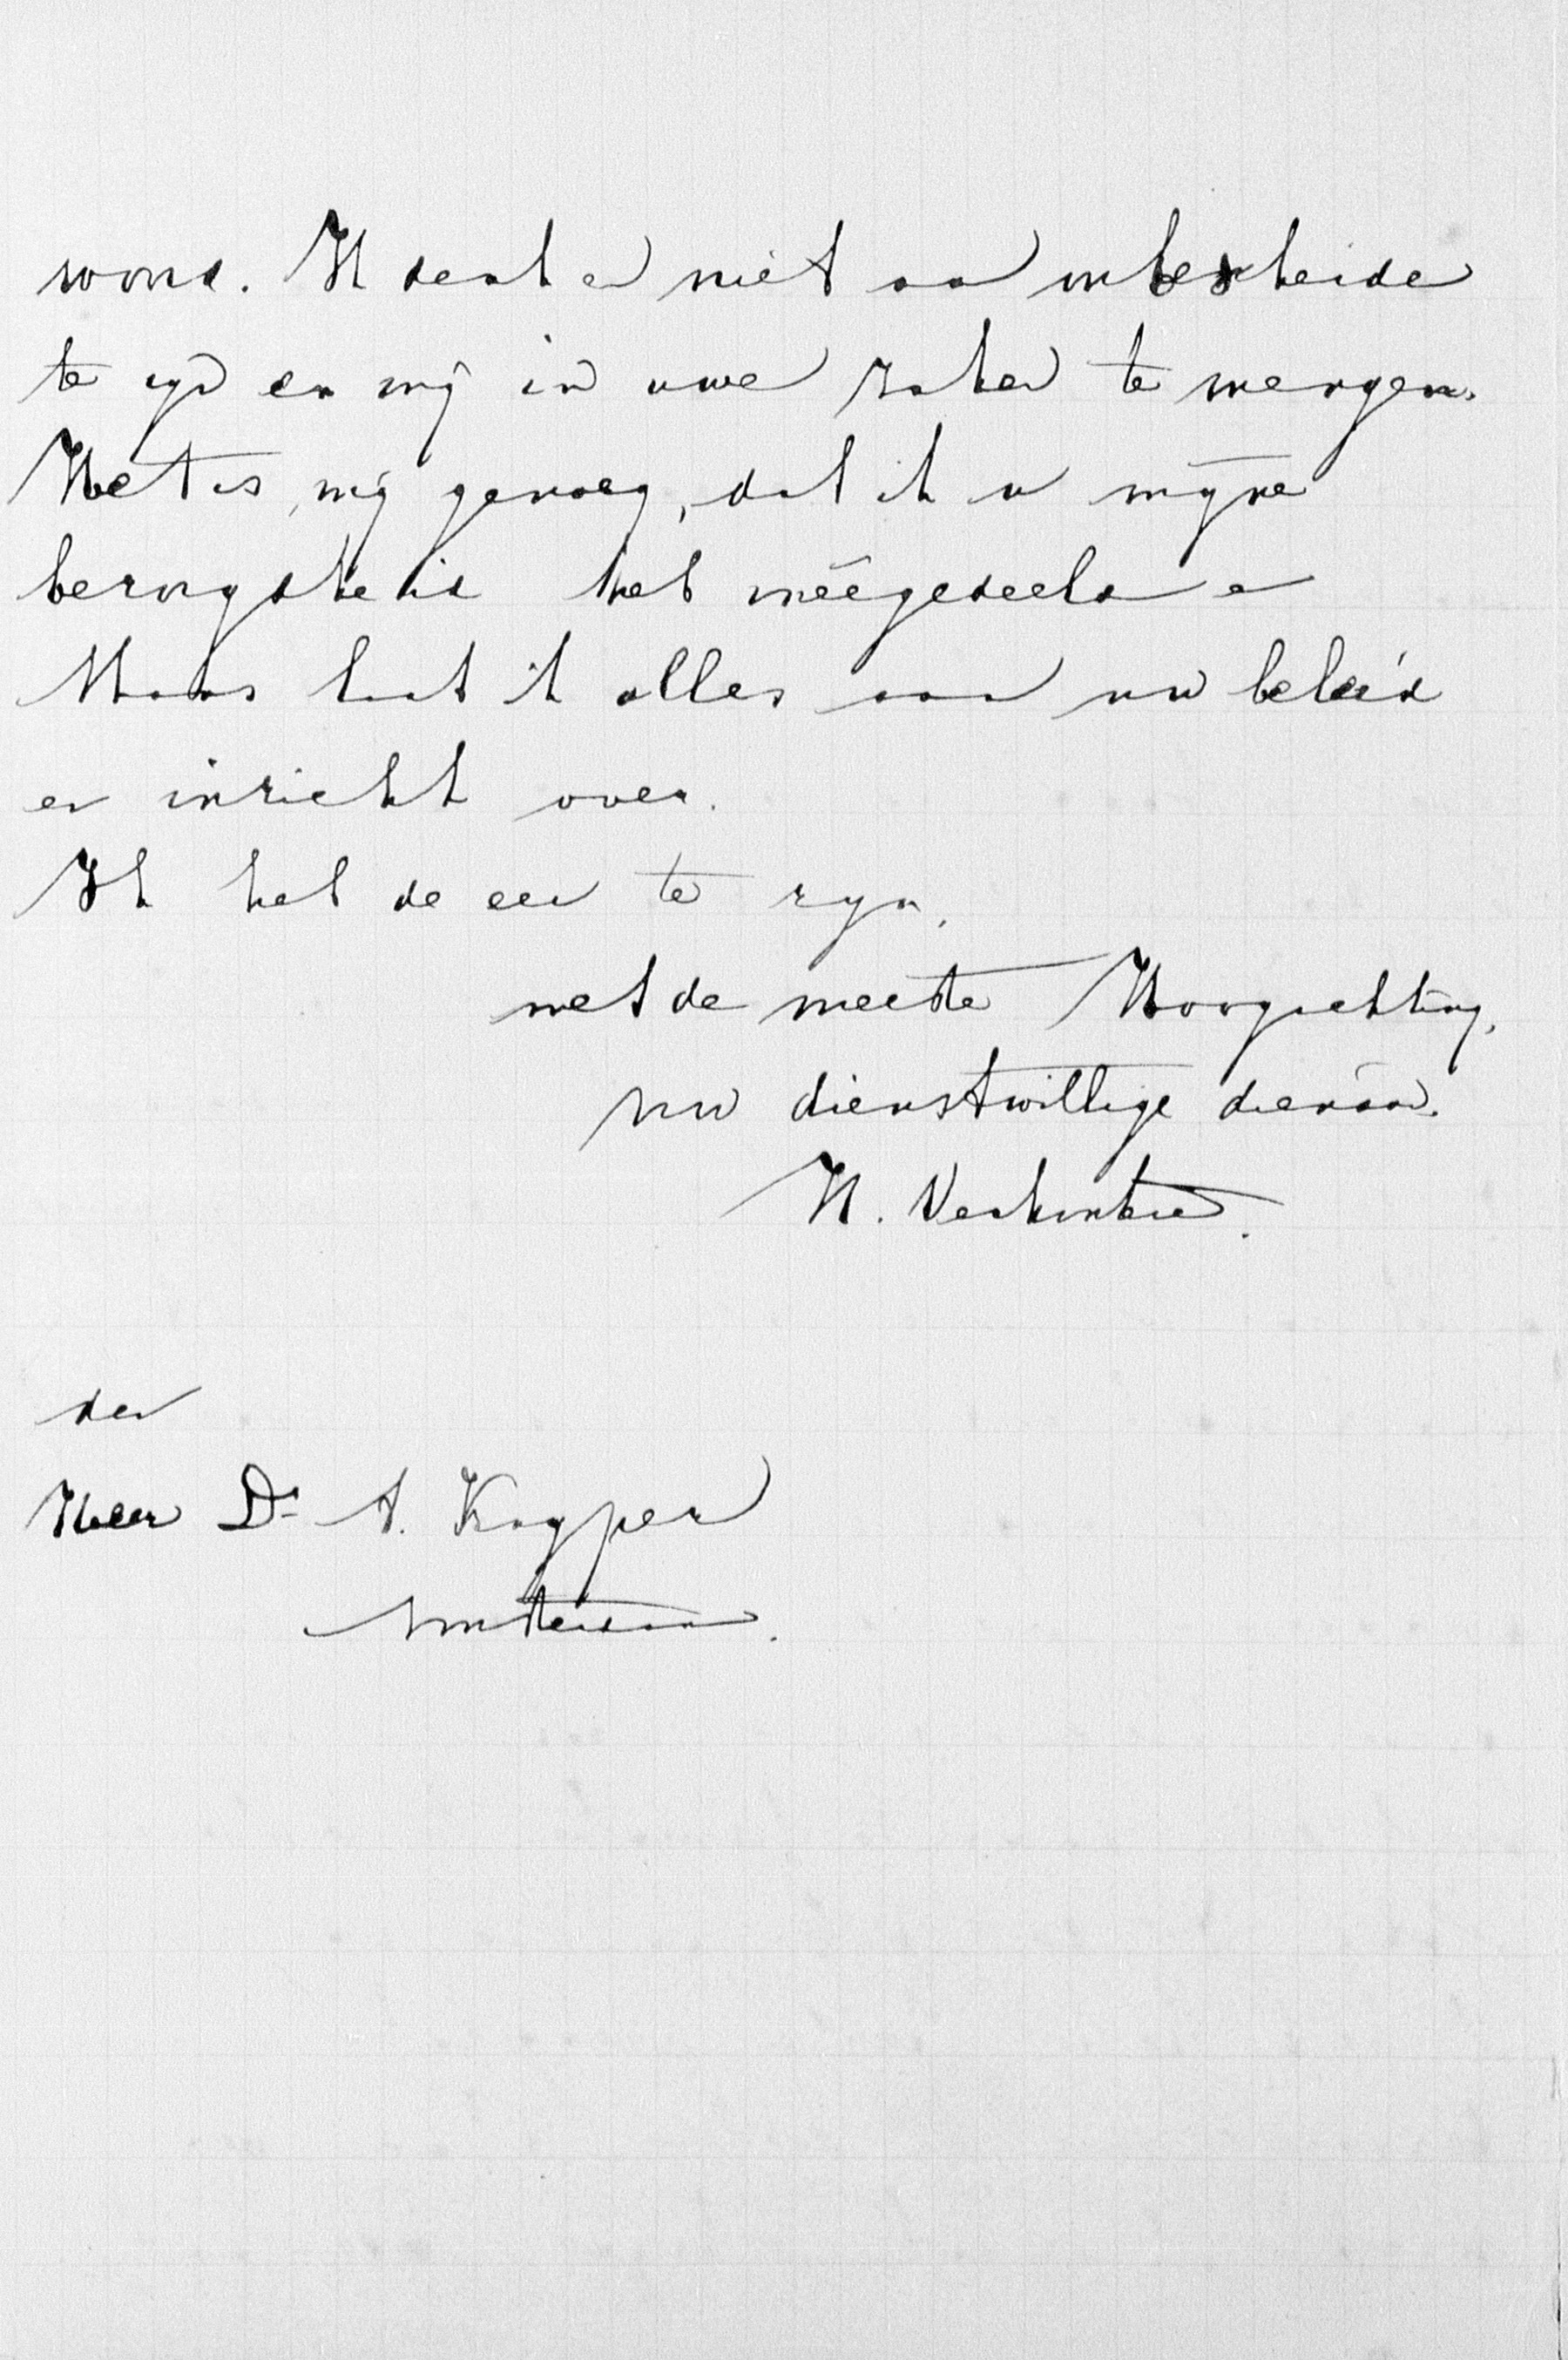 word. Ik denk er niet aan onbescheiden
te zijn en mij in uwe zaken te mengen.
Het is mij genoeg, dat ik u mijne
bezorgdheid heb meêgedeeld en
laat ik alles aan uw beleid
en inzicht over.
Ik heb de eer te zijn,
met de meeste Hoogachting,
uw dienstwillige dienaar.
H.
den
Heer Dr A. Kuyper
Amsterdam.